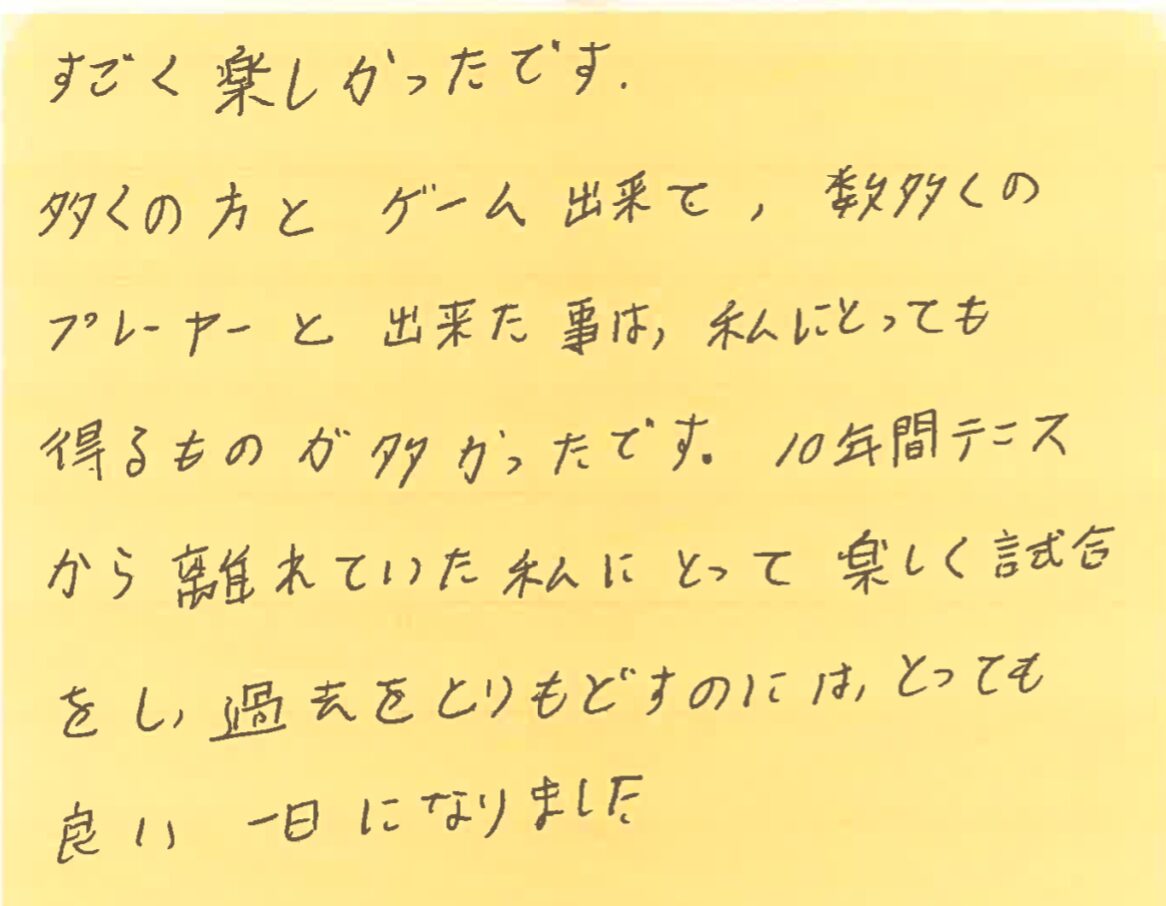 すごく楽しかったです.
多くの方と ゲーム 出来て, 数多くの
プレーヤーと 出来た事は, 私にとっても
得るものが多かったです. 10年間テニス
から離れていた私にとって楽しく試合
をし, 過去をとりもどすのには, とっても
良い 一日になりました